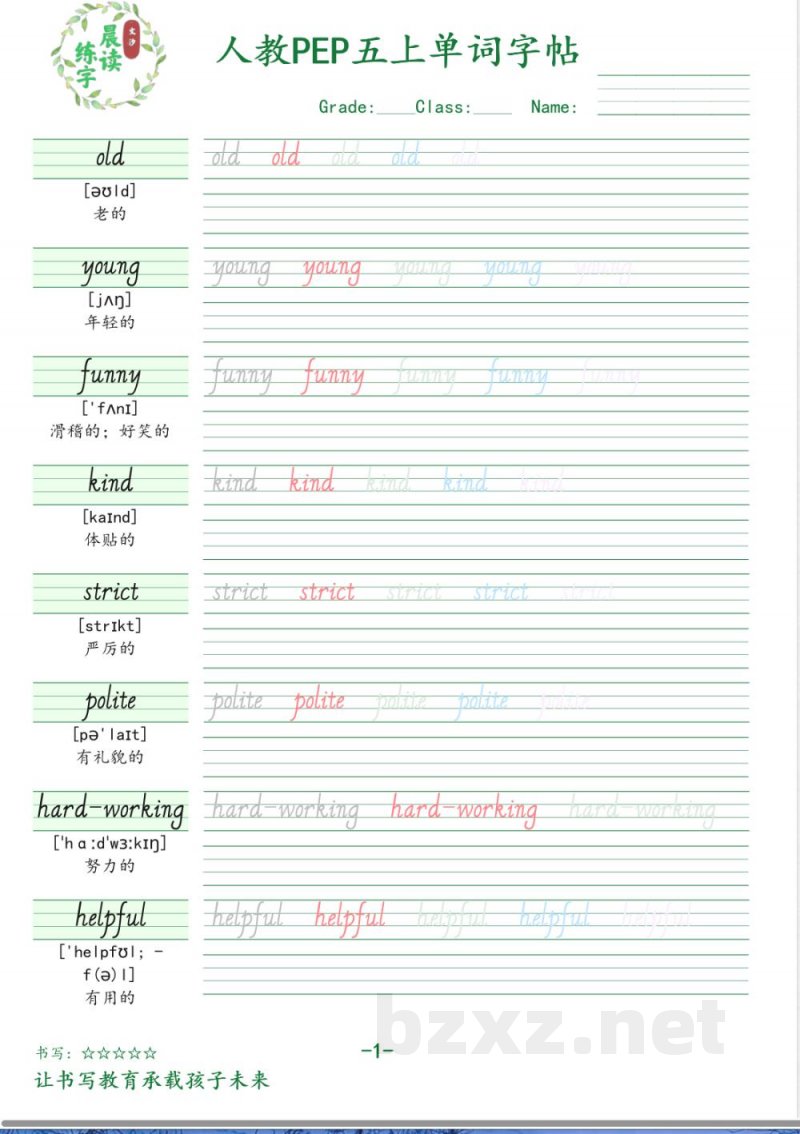 文汐
晨读
练字
人教PEP五上单词字帖
Grade:____Class:____ Name:
old old old old old old
[əʊld]
老的
young young young young young young
[jʌŋ]
年轻的
funny funny funny funny funny funny
[ˈfʌnɪ]
滑稽的；好笑的
kind kind kind kind kind kind
[kaɪnd]
体贴的
strict strict strict strict strict strict
[strɪkt]
严厉的
polite polite polite polite polite polite
[pəˈlaɪt]
有礼貌的
hard-working hard-working hard-working hard-working
[ˈhɑːdˈwɜːkɪŋ]
努力的
helpful helpful helpful helpful helpful helpful
[ˈhelpfʊl; -
f(ə)l]
有用的
bzxz.net
书写：☆☆☆☆☆
-1-
让书写教育承载孩子未来